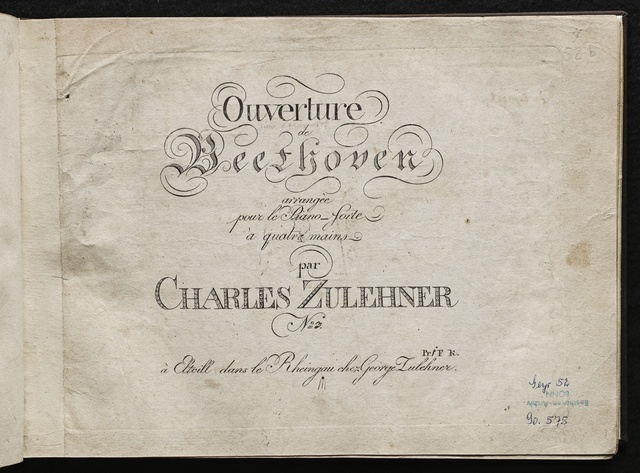 Ouverture
de
Beethoven
arrangée
pour le Piano-forte
à quatre mains
par
CHARLES ZULEHNER
No 3.
Pr. 1 F R.
à Eltvill dans le Rheingau chez George Zulehner.
52
Beethoven-Archiv
BONN
90. 575